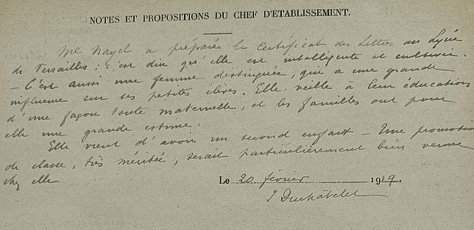 NOTES ET PROPOSITIONS DU CHEF D'ÉTABLISSEMENT.
Me Nagel a préparé le certificat des Lettres au Lycée
de Versailles : c'est dire qu'elle est intelligente et cultivée.
– C'est aussi une femme distinguée, qui a une grande
influence sur ses petites élèves. Elle veille à leur éducation
d'une façon toute maternelle, et les familles ont pour
elle une grande estime.
Elle vient d'avoir un second enfant – Une promotion
de classe, très méritée, serait particulièrement bien venue
chez elle
Le 20 février 1929.
J Duchatelet